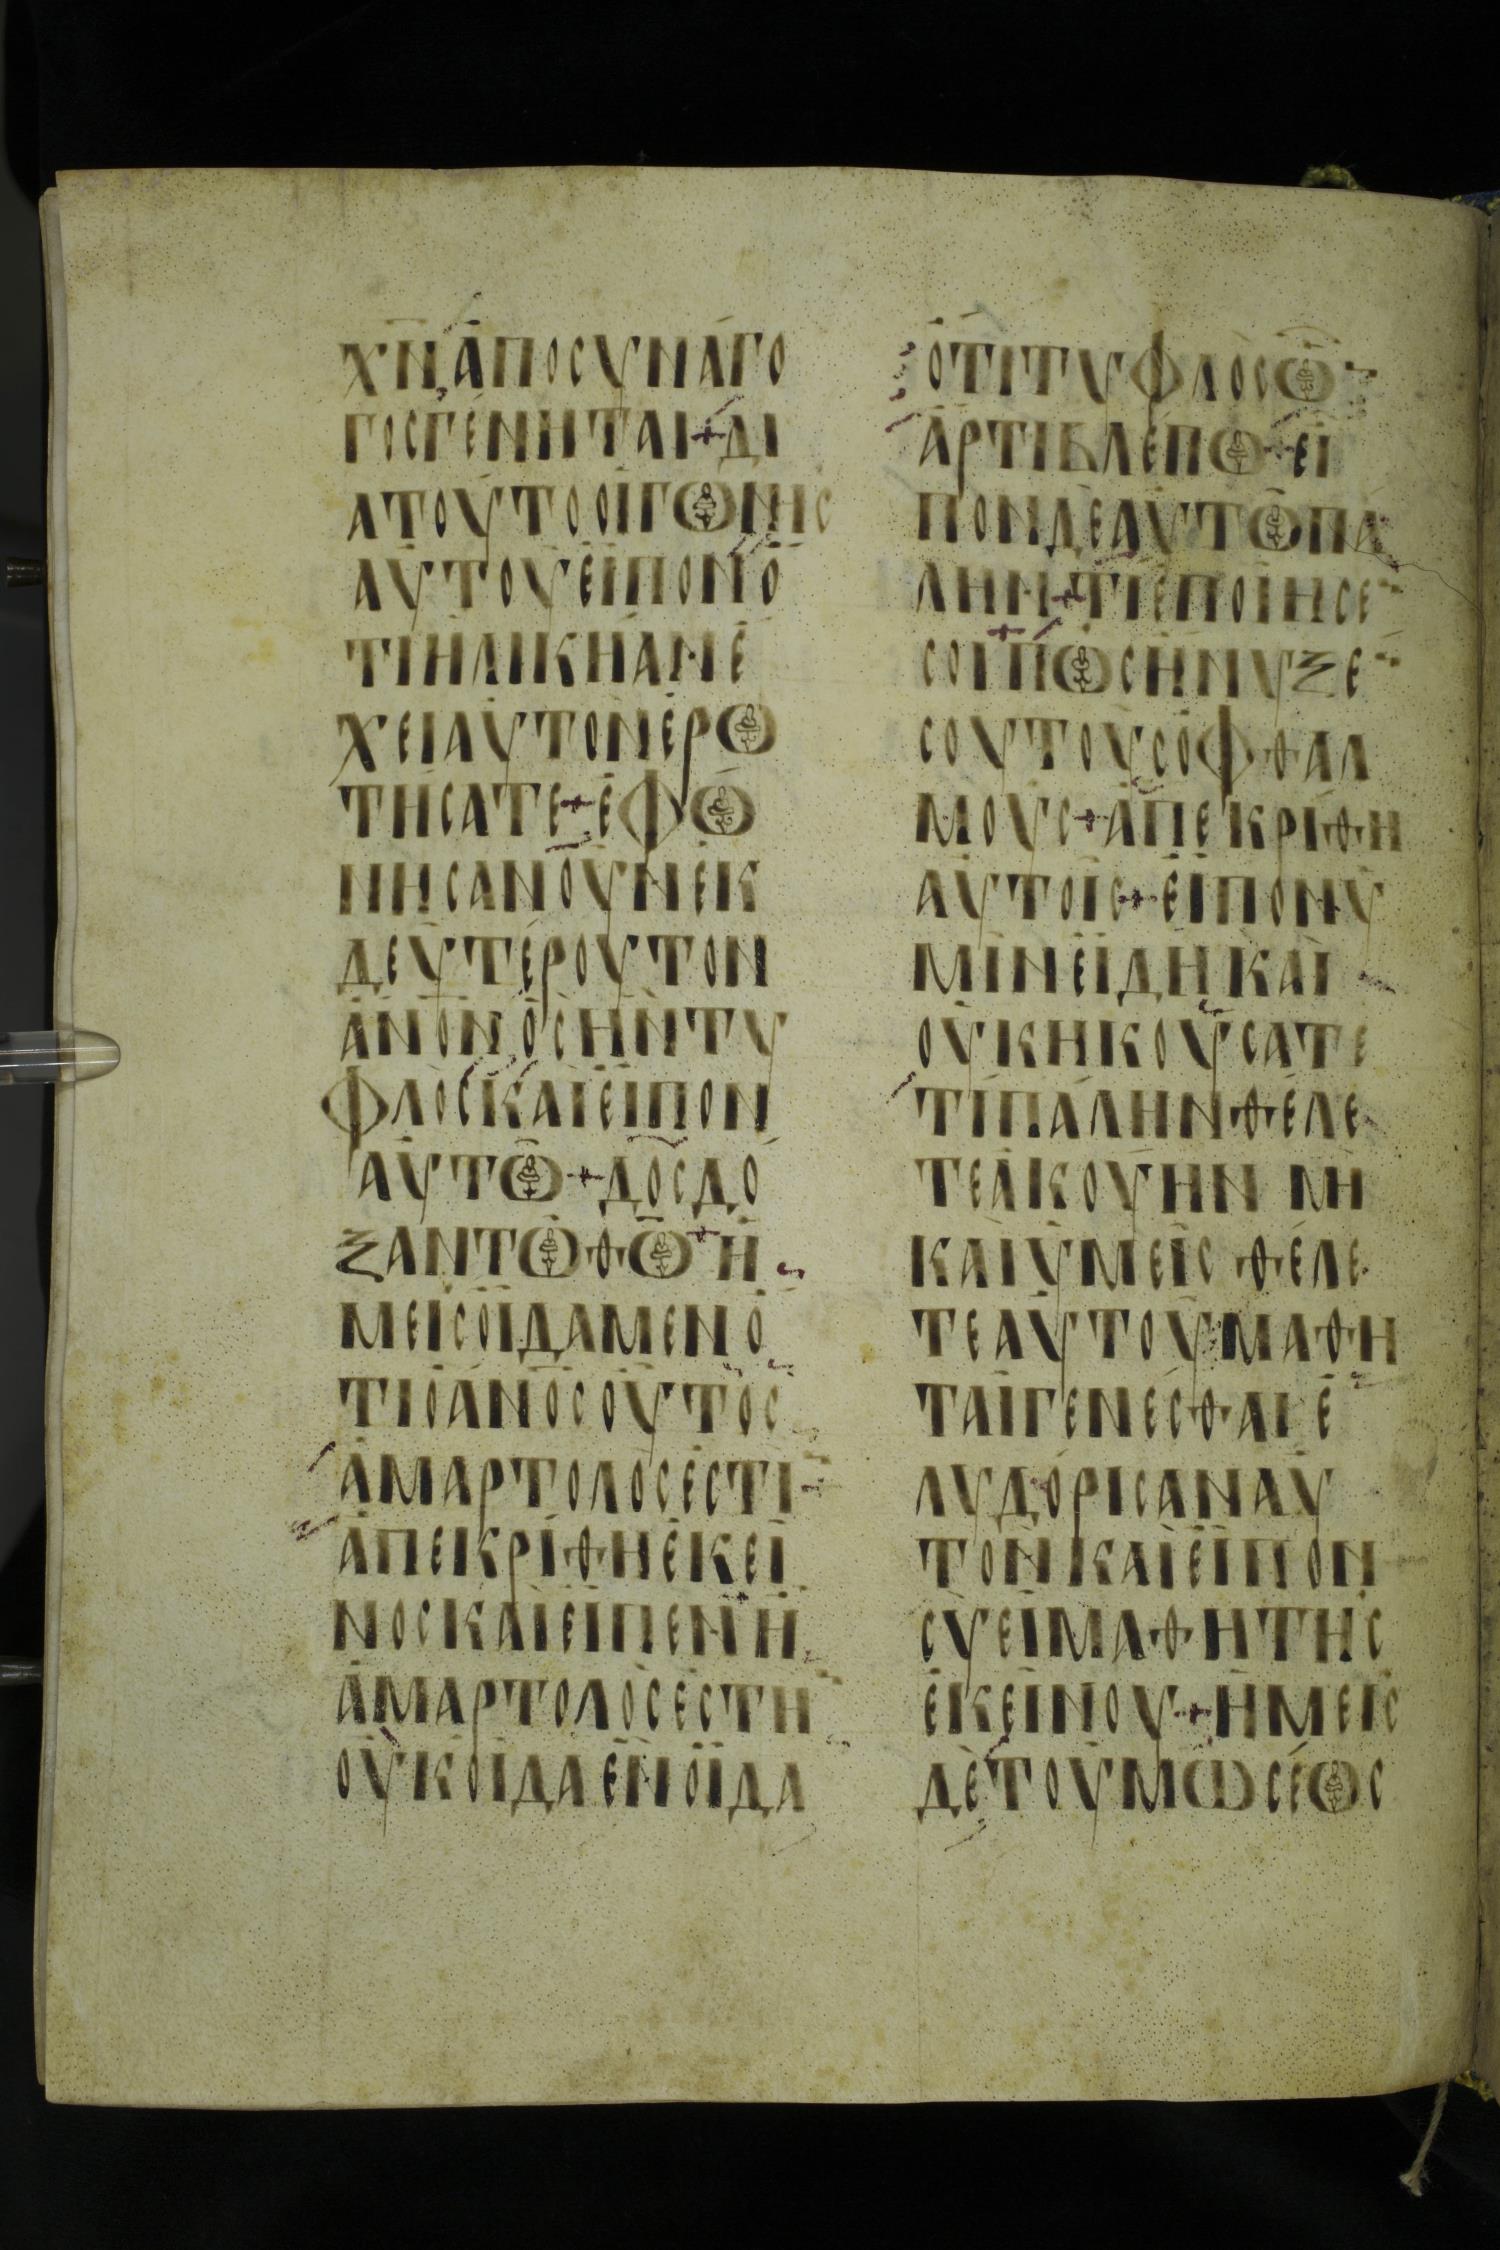 Χ̅Ν̅ ΑΠΟCΥΝΑΓΟ
ΓΟCΓΕΝΗΤΑΙ+ΔΙ
ΑΤΟΥΤΟΟΙΓΩΝΗC
ΑΥΤΟΥΕΙΠΟΝΟ
ΤΙΗΛΙΚΗΑΝΕ
ΧΕΙΑΥΤΟΝΕΡΩ
ΤΗCΑΤΕ+ΕΦΩ
ΝΗCΑΝΟΥΝΕΚ
ΔΕΥΤΕΡΟΥΤΟΝ
Α̅Ν̅Ο̅Ν̅ΟCΗΝΤΥ
ΦΛΟCΚΑΙΕΙΠΟΝ
ΑΥΤΩ+ΔΟCΔΟ
ΞΑΝΤΩΘ̅Ω̅+Η
ΜΕΙCΟΙΔΑΜΕΝΟ
ΤΙΟΑ̅Ν̅Ο̅C̅ΟΥΤΟC
ΑΜΑΡΤΟΛΟCΕCΤΙ
ΑΠΕΚΡΙΘΗΕΚΕΙ
ΝΟCΚΑΙΕΙΠΕΝ+Η
ΑΜΑΡΤΟΛΟCΕCΤΗ
ΟΥΚΟΙΔΑΕΝΟΙΔΑ
ΟΤΙΤΥΦΛΟCΩ
ΑΡΤΙΒΛΕΠΩ+ΕΙ
ΠΟΝΔΕΑΥΤΩΠΑ
ΛΗΝ+ΤΙΕΠΟΙΗCΕ
CΟΙ+ΠΩCΗΝΥΞΕ
CΟΥΤΟΥCΟΦΘΑΛ
ΜΟΥC+ΑΠΕΚΡΙΘΗ
ΑΥΤΟΙC+ΕΙΠΟΝΥ
ΜΙΝΕΙΔΗΚΑΙ
ΟΥΚΗΚΟΥCΑΤΕ
ΤΙΠΑΛΗΝΘΕΛΕ
ΤΕΑΚΟΥΗΝ ΜΗ
ΚΑΙΥΜΕΙCΘΕΛΕ
ΤΕΑΥΤΟΥΜΑΘΗ
ΤΑΙΓΕΝΕCΘΑΙΕ
ΛΥΔΟΡΙCΑΝΑΥ
ΤΟΝΚΑΙΕΙΠΟΝ
CΥΕΙΜΑΘΗΤΗC
ΕΚΕΙΝΟΥ+ΗΜΕΙC
ΔΕΤΟΥΜΩCΕΩC